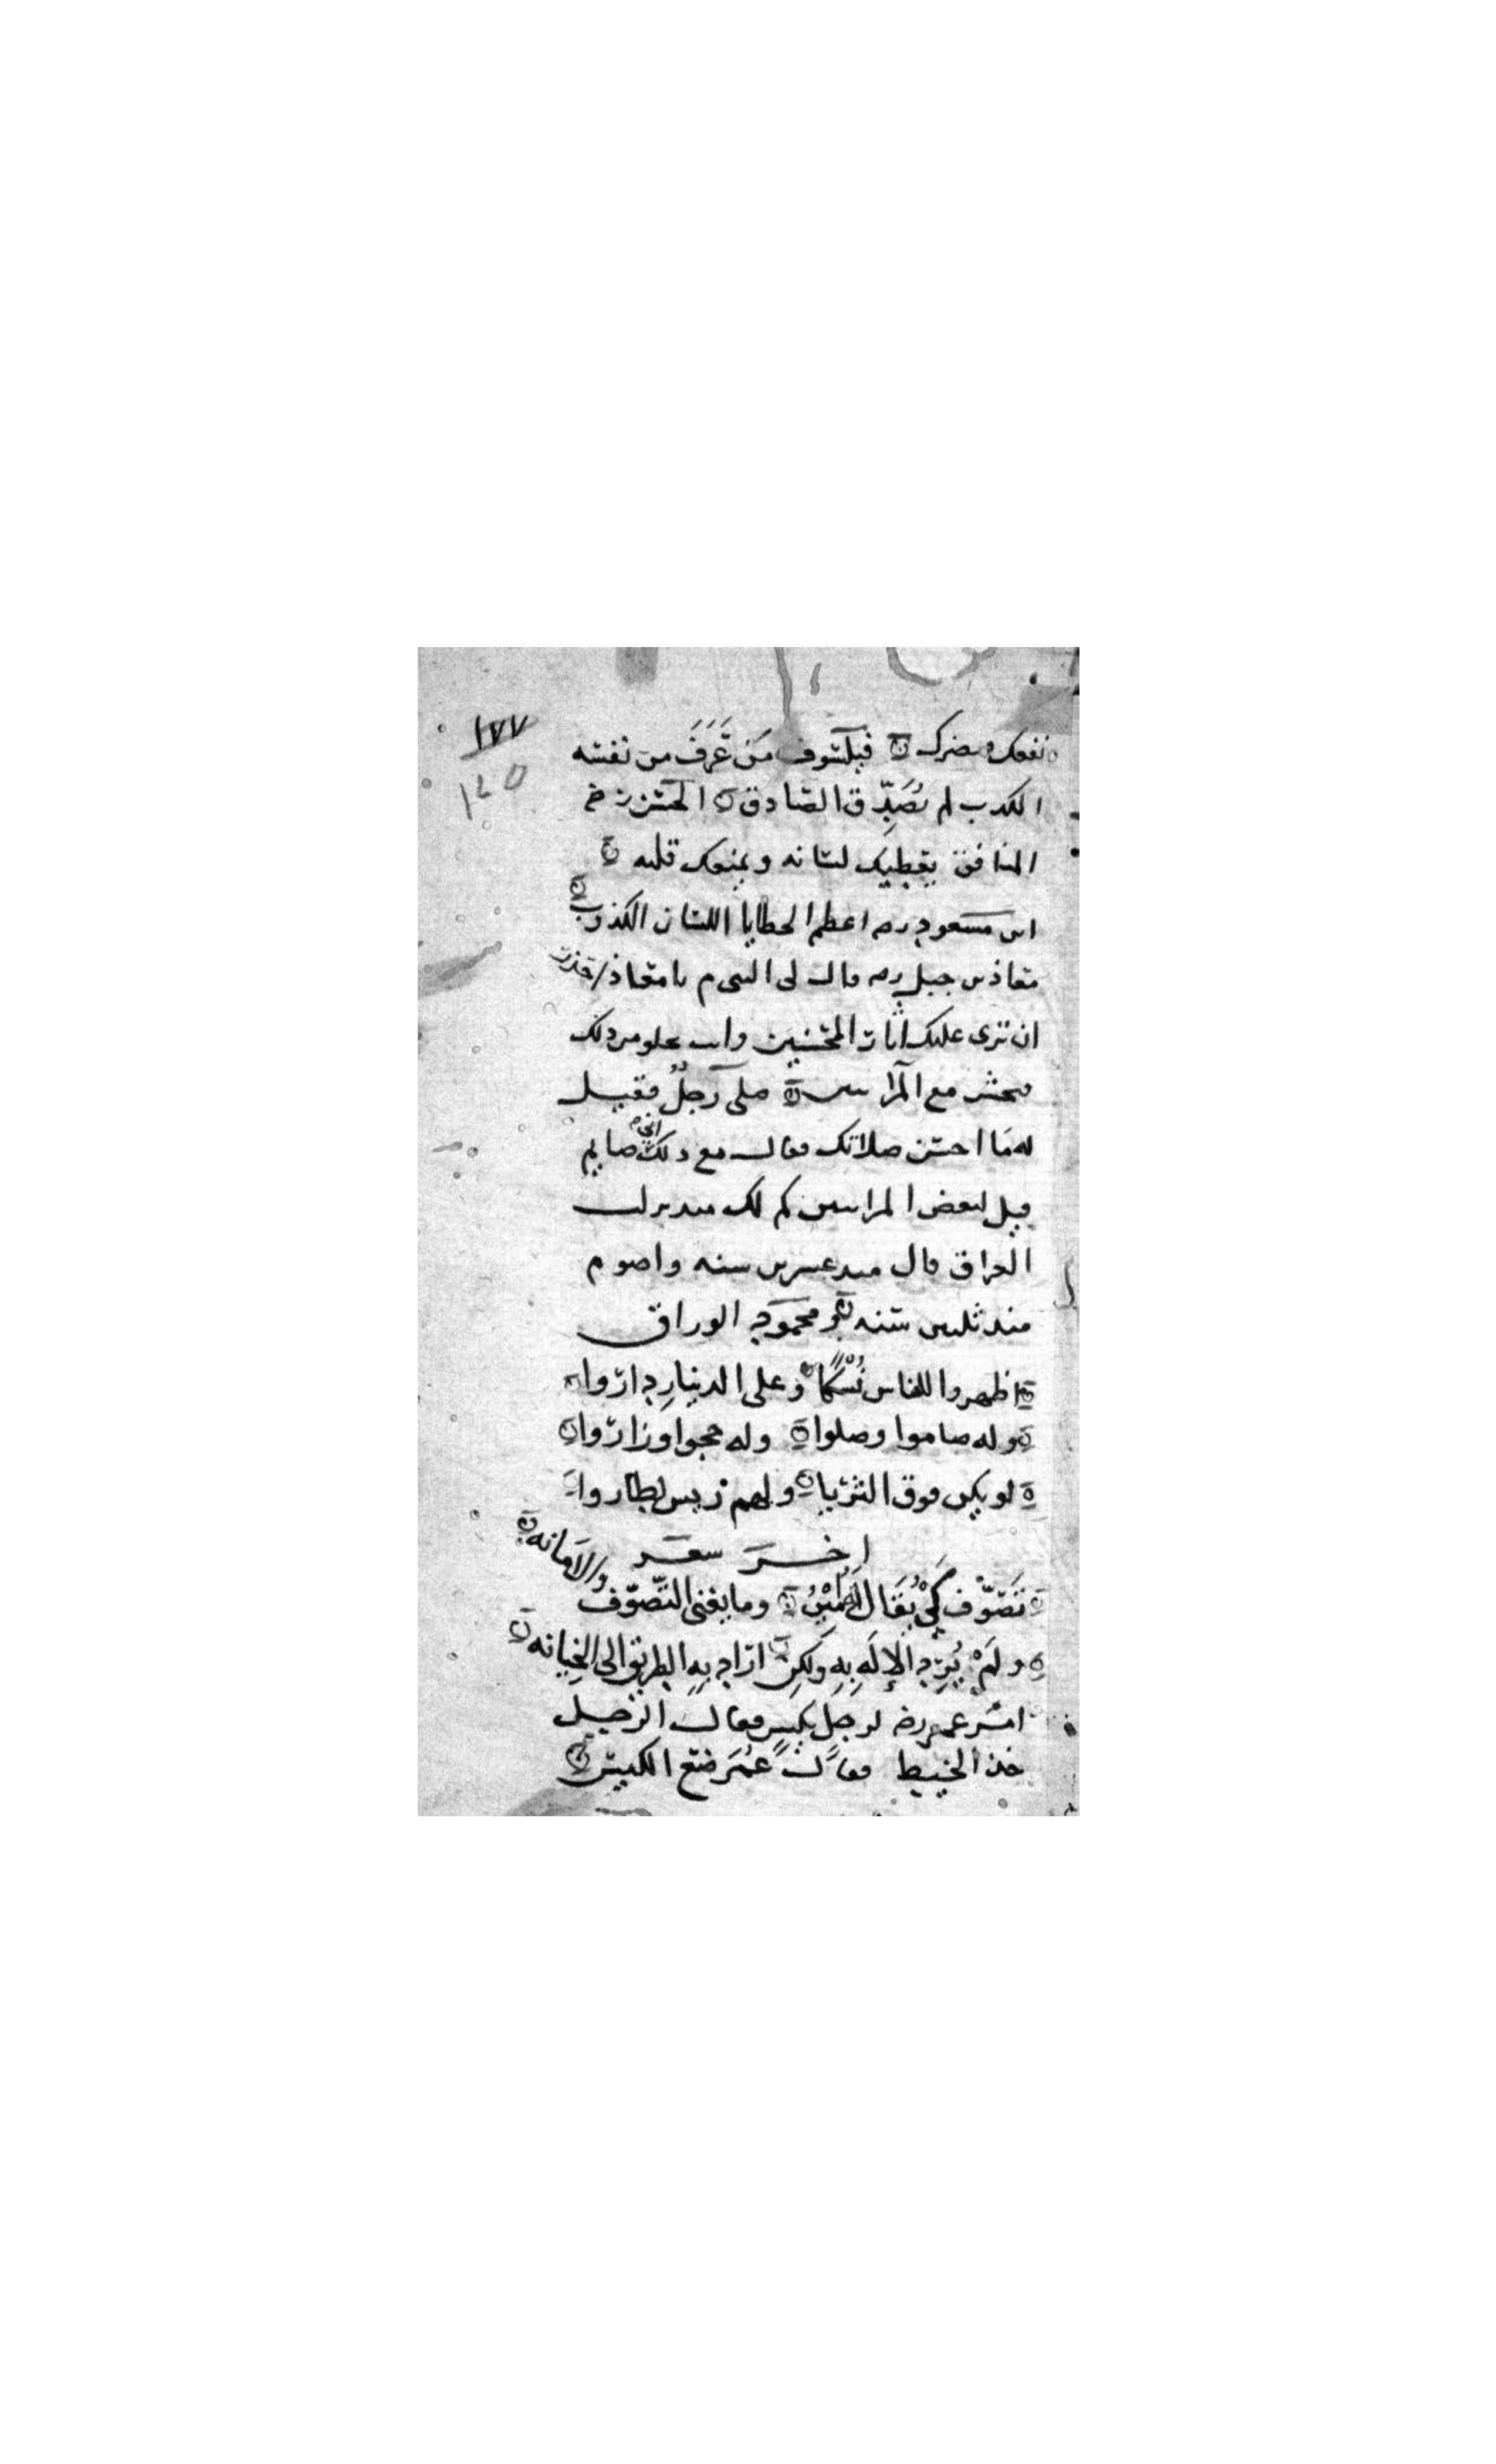 ١٧٧
١٤٥
نفعك مضرك ۞ فيلسوف مَن عَرَفَ من نفسه
الكدب لم يُصَدِّق الصادق ۞ الحسن رضي
المنافق يعطيك لسانه ويمنعك قلبه ۞
ابن مسعود رضه اعظم الخطايا اللسان الكذوب ۞
معاذ بن جبل رضه قال لي النبي م يا معاذ احذر
ان ترى عليك آثار المحسنين وانت تخلو من ذلك
فتحشر مع المرائين ۞ صلى رجلٌ فقيل
له ما احسن صلاتك فقال مع ذلك اني صايم
قيل لبعض المرايين كم لك منذ نزلت
العراق قال منذ عشرين سنه واصوم
منذ ثلثين سنه ۞ محمود الوراق
اظهروا للناس نُسْكًا ۞ وعلى الدينارِ دارُوا
وله صاموا وصلوا ۞ وله حجوا وزارُوا
لو يكن فوق الثريا ۞ ولهم ريس لطاروا
اخر سعر
تَصَوَّفَ كَيْ يُقَالَ لَهُ أَمِيْنُ ۞ وما يغني التَّصوّف والامانه ۞
ولَمْ يُرِدِ الإلَهَ بِهِ ولَكِنْ ۞ ارَادَ بِهِ الطريق الى الخِيانه ۞
امر عمر رضه لرجل بكيس فقال الرجل
خذ الخيط فقال عُمَر ضع الكيس ۞